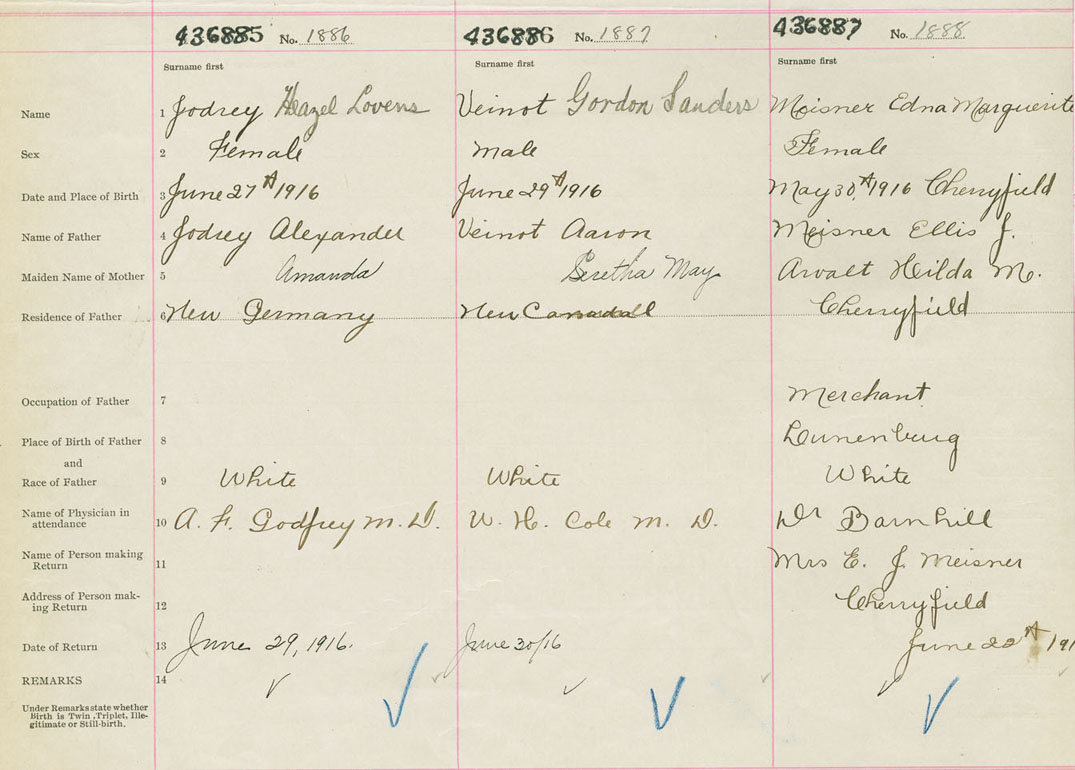 436885 No. 1886 436886 No. 1887 436887 No. 1888
Surname first Surname first Surname first
Name 1 Jodrey Hazel Lovens Veinot Gordon Sanders Meisner Edna Marguerite
Sex 2 Female Male Female
Date and Place of Birth 3 June 27th 1916 June 29th 1916 May 30th 1916 Cherryfield
Name of Father 4 Jodrey Alexander Veinot Aaron Meisner Ellis J.
Maiden Name of Mother 5 Amanda Seretha May Arvalt Hilda M.
Residence of Father 6 New Germany New Cherryfield
Occupation of Father 7 Merchant
Place of Birth of Father 8 Lunenburg
and
Race of Father 9 White White White
Name of Physician in
attendance 10 A. F. Godfrey M. D. W. H. Cole M. D. Dr Barnhill
Name of Person making
Return 11 Mrs E. J. Meisner
Address of Person mak-
ing Return 12 Cherryfield
Date of Return 13 June 29, 1916. June 30/16 June 191
REMARKS 14
Under Remarks state whether
Birth is Twin, Triplet, Ille-
gitimate or Still-birth.